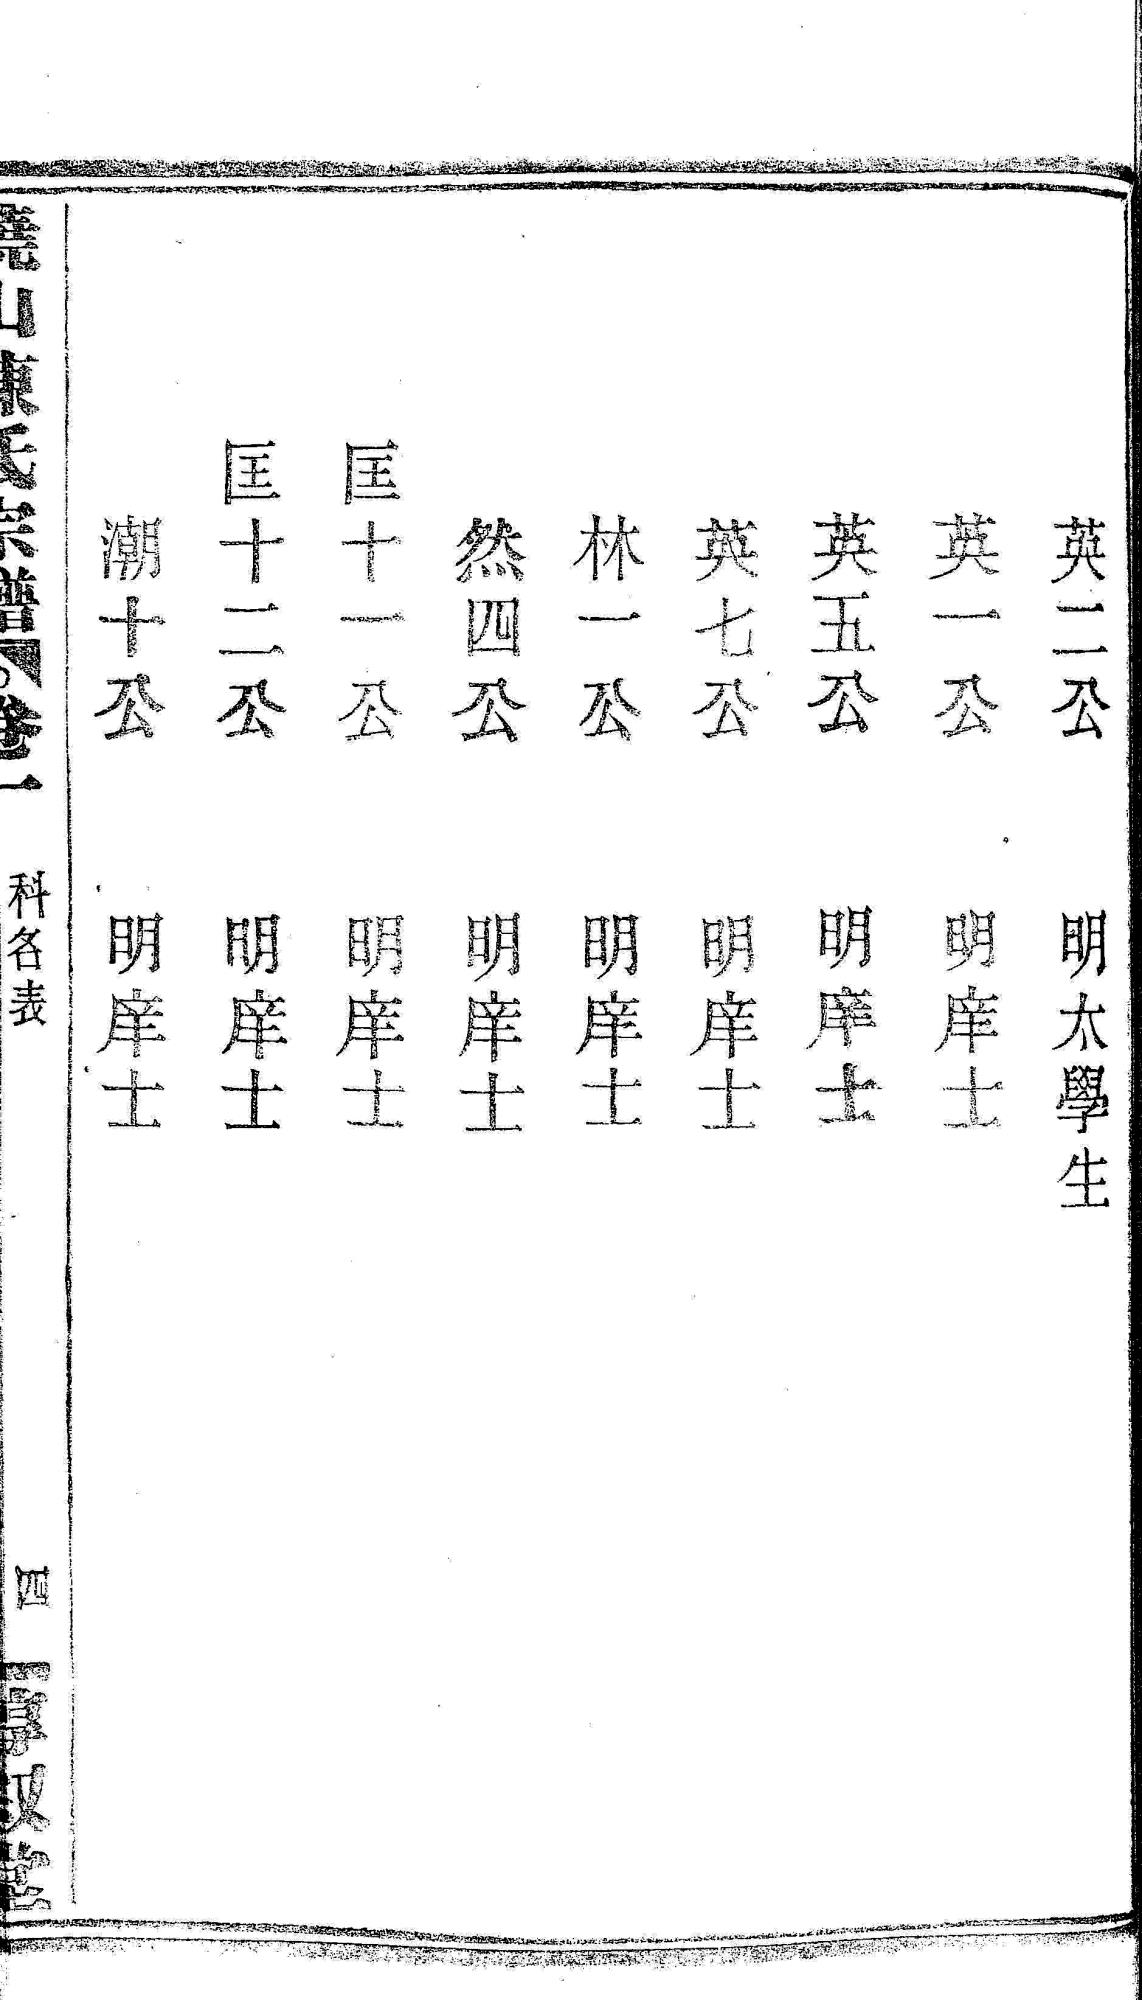 英二公　明太學生
英一公　明庠士
英五公　明庠士
英七公　明庠士
林一公　明庠士
然四公　明庠士
匡十一公　明庠士
匡十二公　明庠士
潮十公　明庠士
山陳氏宗譜　卷一　科名表　四　叙堂